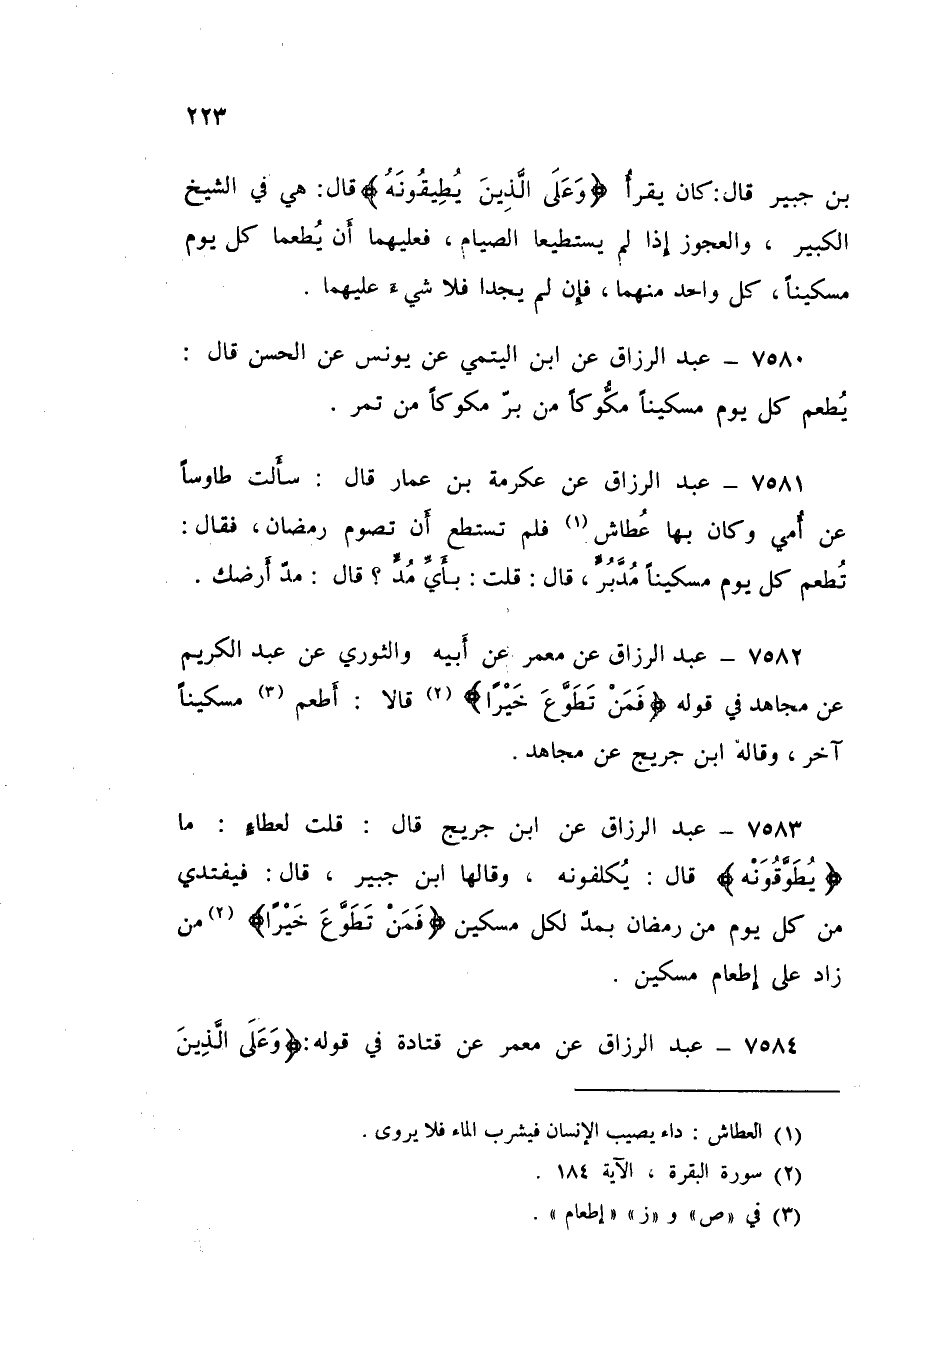 ٢٢٣
بن جبير قال: كان يقرأ ﴿وَعَلَى الَّذِينَ يُطِيقُونَهُ﴾ قال: هي في الشيخ
الكبير ، والعجوز إذا لم يستطيعا الصيام ، فعليهما أن يُطعما كل يوم
مسكيناً ، كل واحد منهما ، فإن لم يجدا فلا شيء عليهما .
٧٥٨٠ – عبد الرزاق عن ابن التيمي عن يونس عن الحسن قال :
يُطعم كل يوم مسكيناً مكُّوكاً من برّ مكوكاً من تمر .
٧٥٨١ – عبد الرزاق عن عكرمة بن عمار قال : سألت طاوساً
عن أُمي وكان بها عُطاش (١) فلم تستطع أن تصوم رمضان ، فقال :
تُطعم كل يوم مسكيناً مُدَّبُرٍّ ، قال : قلت : بأَيِّ مُدٍّ ؟ قال : مدّ أرضك .
٧٥٨٢ – عبد الرزاق عن معمر عن أبيه والثوري عن عبد الكريم
عن مجاهد في قوله ﴿فَمَنْ تَطَوَّعَ خَيْرًا﴾ (٢) قالا : أطعم (٣) مسكيناً
آخر ، وقاله ابن جريج عن مجاهد .
٧٥٨٣ – عبد الرزاق عن ابن جريج قال : قلت لعطاءٍ : ما
﴿يُطَوَّقُونَهُ﴾ قال : يُكلفونه ، وقالها ابن جبير ، قال : فيفتدي
من كل يوم من رمضان بمدّ لكل مسكين ﴿فَمَنْ تَطَوَّعَ خَيْرًا﴾ (٢) من
زاد على إطعام مسكين .
٧٥٨٤ – عبد الرزاق عن معمر عن قتادة في قوله: ﴿وَعَلَى الَّذِينَ
(١) العطاش : داء يصيب الإنسان فيشرب الماء فلا يروى .
(٢) سورة البقرة ، الآية ١٨٤ .
(٣) في «ص» و «ز» «إطعام» .